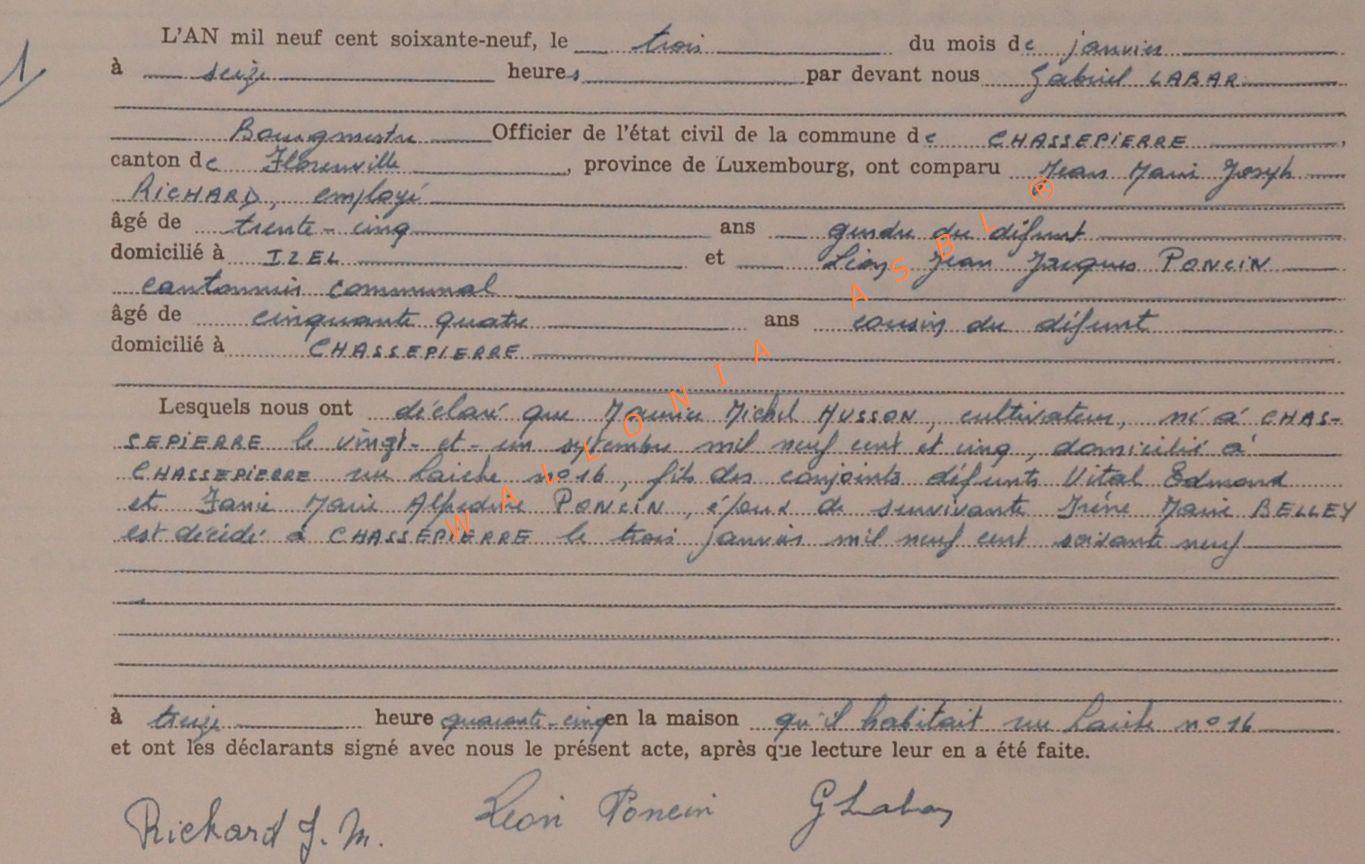 1/
L'AN mil neuf cent soixante-neuf, le trois du mois de janvier
à seize heures par devant nous Gabriel LABAR
Bourgmestre Officier de l'état civil de la commune de CHASSEPIERRE,
canton de Florenville, province de Luxembourg, ont comparu Jean Marie Joseph
RICHARD, employé
âgé de trente-cinq ans gendre du défunt
domicilié à IZEL et Léon Jean Jacques PONCIN
cantonnier communal
âgé de cinquante quatre ans cousin du défunt
domicilié à CHASSEPIERRE
Lesquels nous ont déclaré que Maurice Michel HUSSON, cultivateur, né à CHAS-
SEPIERRE le vingt-et-un septembre mil neuf cent et cinq, domicilié à
CHASSEPIERRE rue Laiche n°16, fils des conjoints défunts Vital Edmond
et Fanie Marie Alfredine PONCIN, époux de survivante Irène Marie BELLEY
est décédé à CHASSEPIERRE le trois janvier mil neuf cent soixante neuf
à treize heure quarante-cinq en la maison qu'il habitait rue Laiche n°16
et ont les déclarants signé avec nous le présent acte, après que lecture leur en a été faite.
Richard J. M. Léon Poncin G Labar
WALLONIA ASBL ®